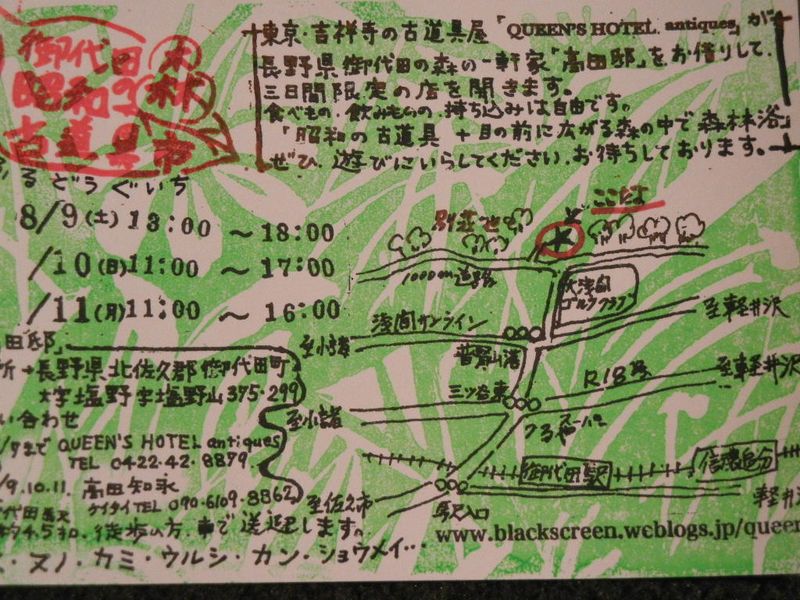 御代田の森
昭和の
古道具市
るどうぐいち
東京・吉祥寺の古道具屋「QUEEN'S HOTEL. antiques」が
長野県御代田の森の一軒家「高田邸」をお借りして、
三日間限定の店を開きます。
食べもの、飲みものの、持ち込みは自由です。
「昭和の古道具 + 目の前に広がる森の中で森林浴」
ぜひ、遊びにいらしてください。お待ちしております。
8/9(土) 13:00 ～18:00
/10(日) 11:00 ～ 17:00
/11(月) 11:00 ～ 16:00
田邸」
所→長野県北佐久郡御代田町
大字塩野字塩野山375-299
い合わせ
/8まで QUEEN'S HOTEL antiques
TEL 0422.42.8879.
/9.10.11. 高田知永
ケイタイTEL 090-6109-8862
徒歩の方、車で送迎します。
ヌノ・カミ・ウルシ・カン・ショウメイ…
ここだよ
別荘地
1000m道路
大浅間
ゴルフクラブ
浅間サンライン
至軽井沢
至小諸
普賢山落
三ツ谷東
R18号
至軽井沢
至小諸
つるや
スーパー
御代田駅
信濃追分
至佐久市
駅入口
軽井
www.blackscreen.weblogs.jp/queen